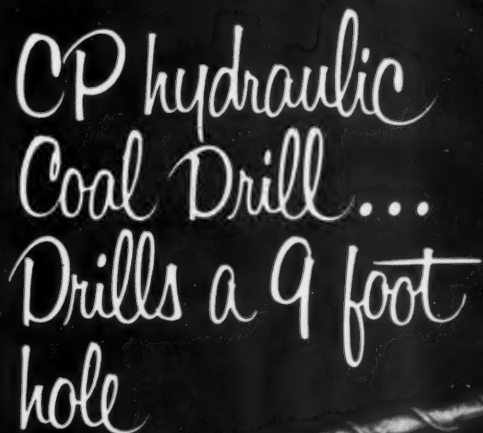 CP hydraulic
Coal Drill...
Drills a 9 foot
hole